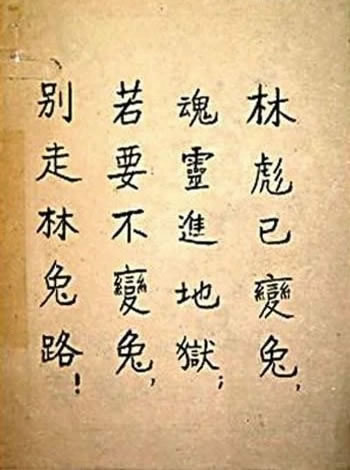 林彪已變兔，
魂靈進地獄；
若要不變兔，
别走林兔路！